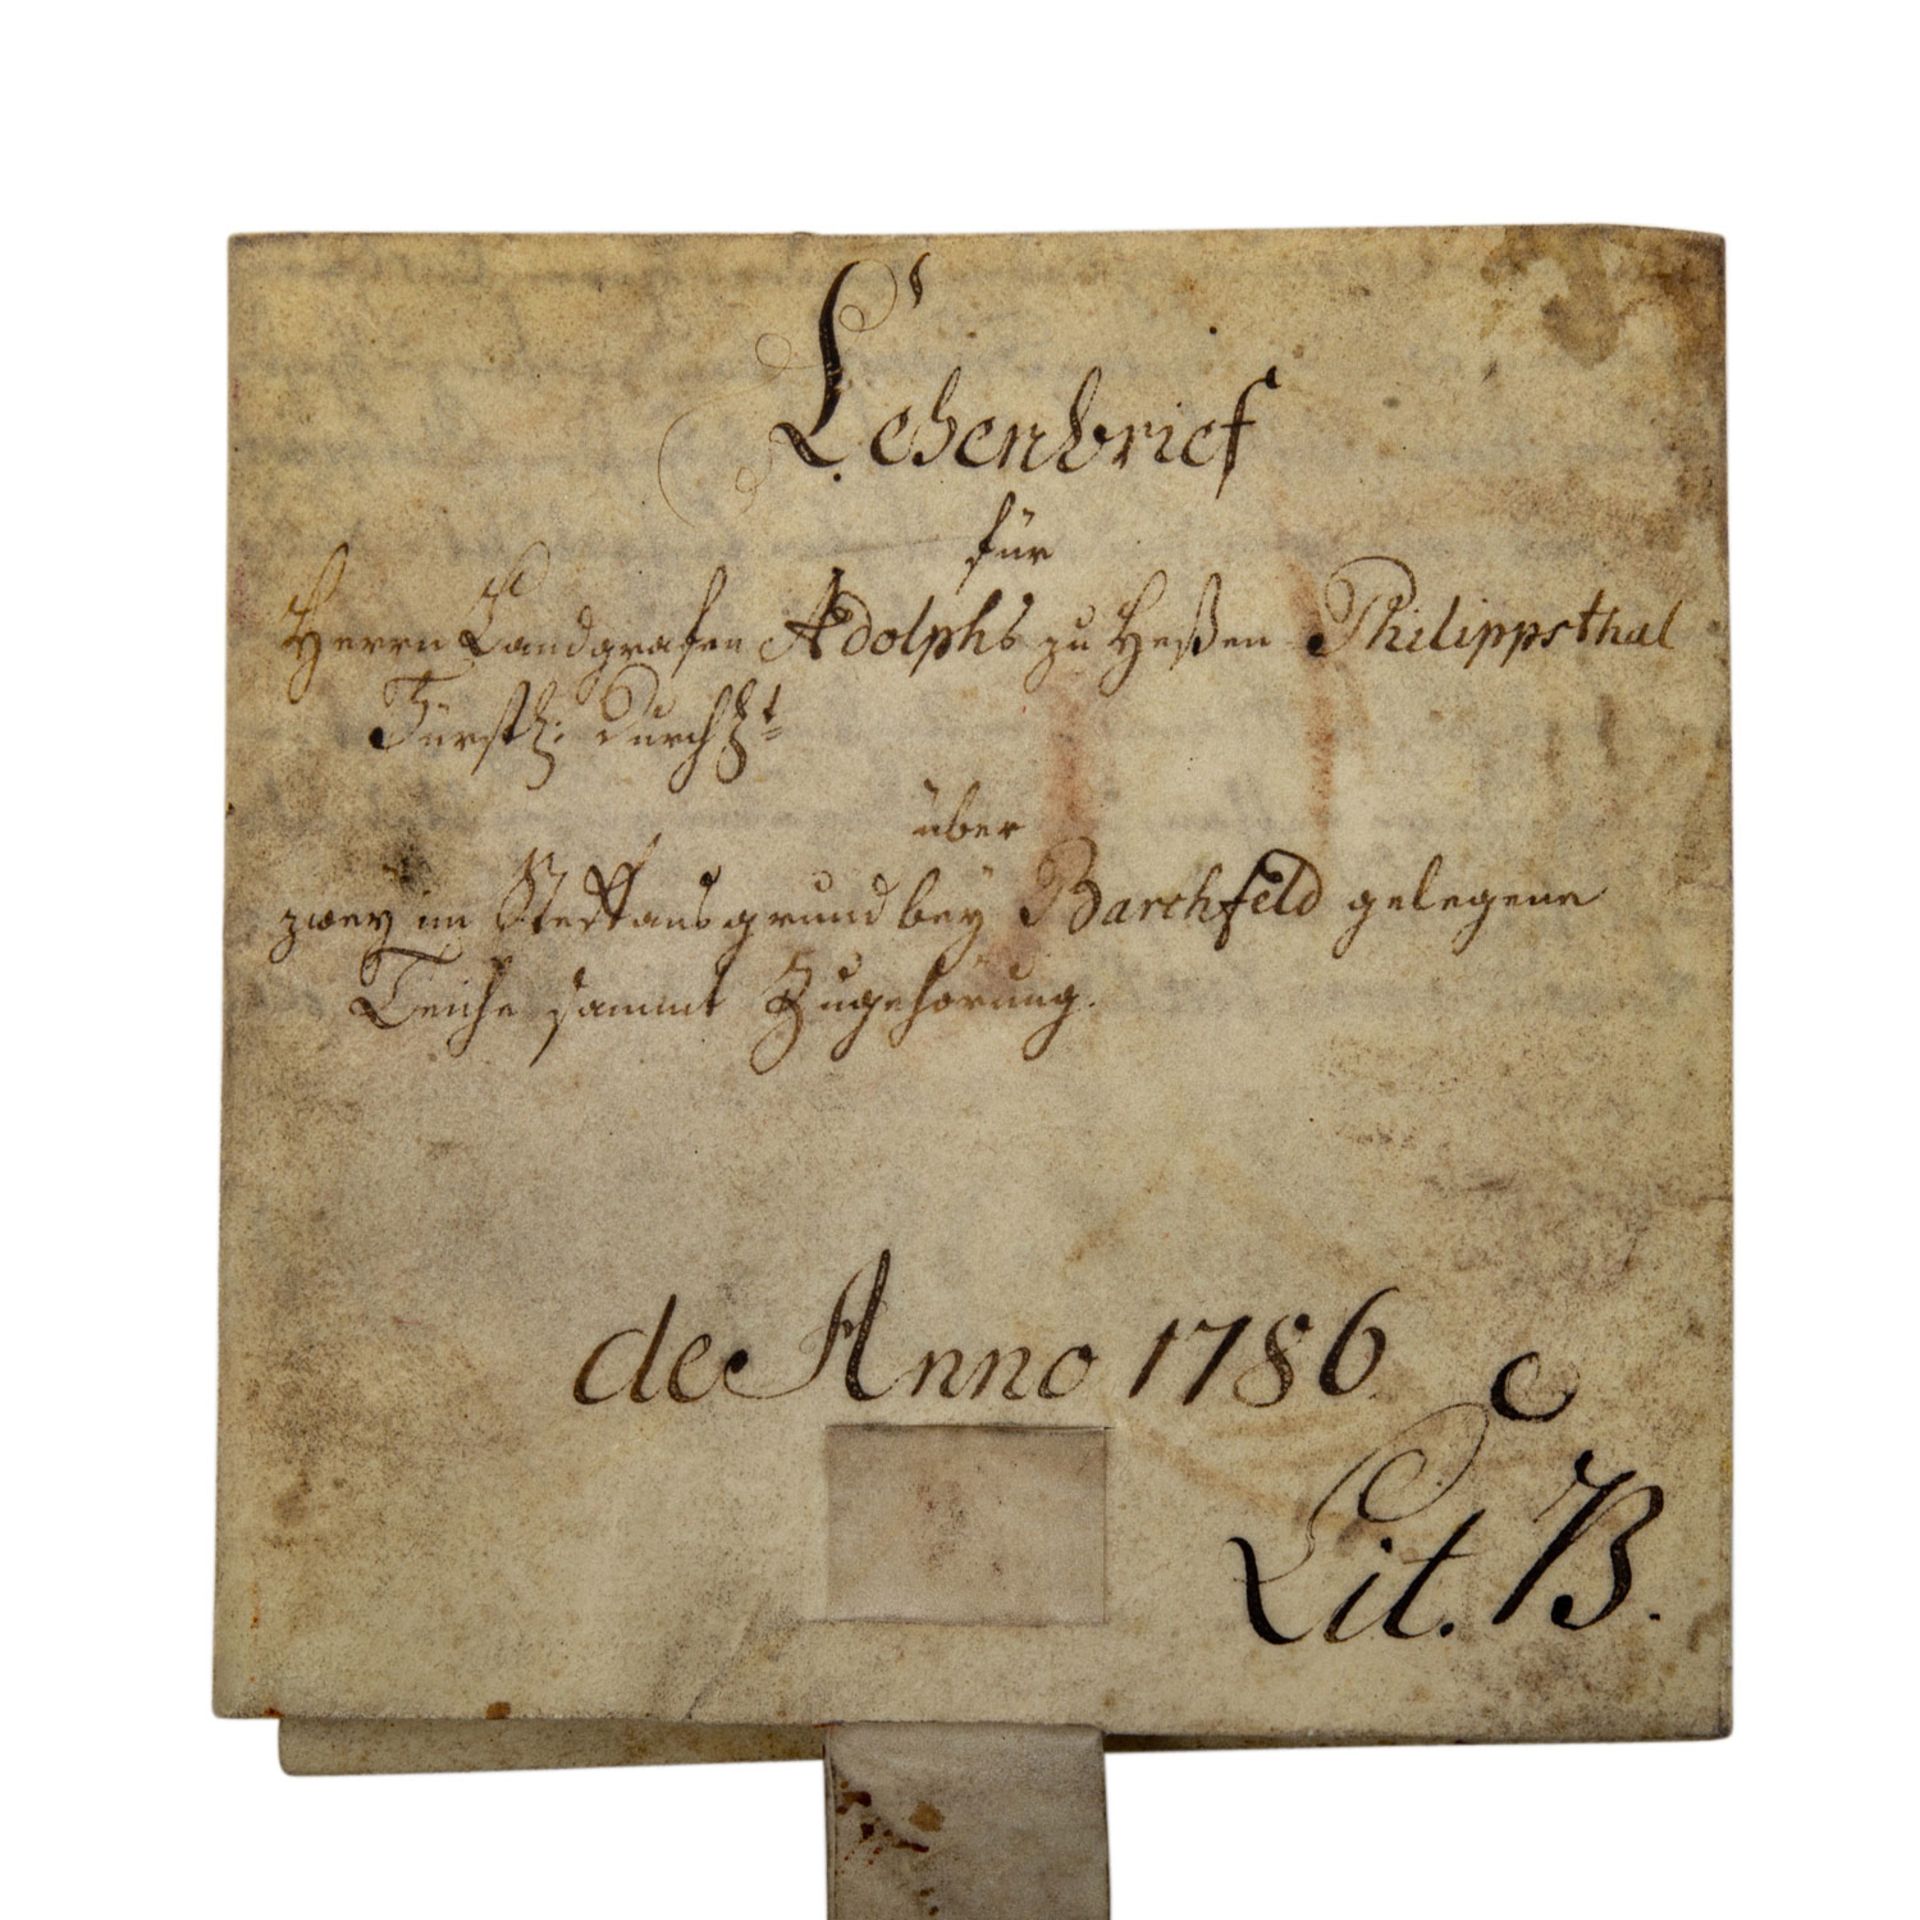 Lehenbrief
für
Herrn Landgrafen Adolphs zu Heßen Philippsthal
Fürstl: Durchlt
über
zwey im grund bey Barchfeld gelegene
Teiche sammt Zugehörung.
de Anno 1786
C
Lit. B.